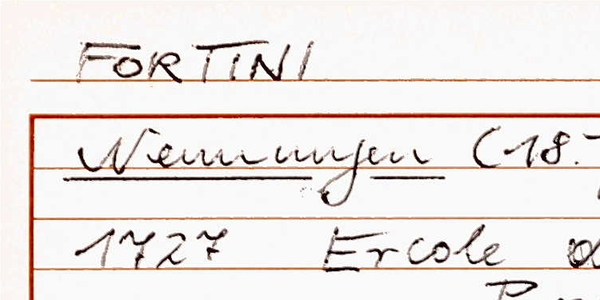 FORTINI
Nennungen (18.
1727 Ercole